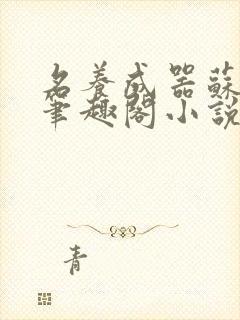 名养成器蘇
筆趣閣小說
青